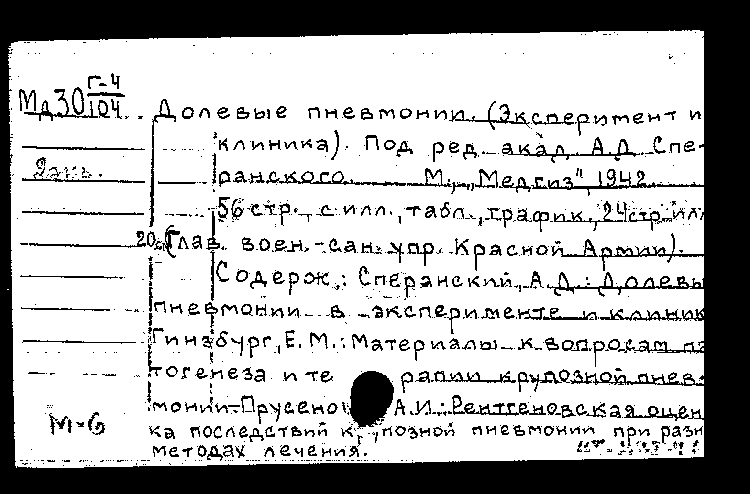 Мд30 Г-4/104
Долевые пневмонии. (Эксперимент и
клиника). Под ред. акад. А.Д. Спе-
ранского. М., "Медгиз", 1942.
2 экз.
56 стр., с илл., табл., график., 24 стр. ил
20с. (Глав. воен.-сан. упр. Красной Армии).
Содерж.: Сперанский, А.Д.: Долевы
пневмонии в эксперименте и клиник
Гинзбург, Е.М.: Материалы к вопросам па
тогенеза и терапии крупозной пнев-
монии-Прусенов А.И.: Рентгеновская оцен
М-6
ка последствий крупозной пневмонии при разн
методах лечения.